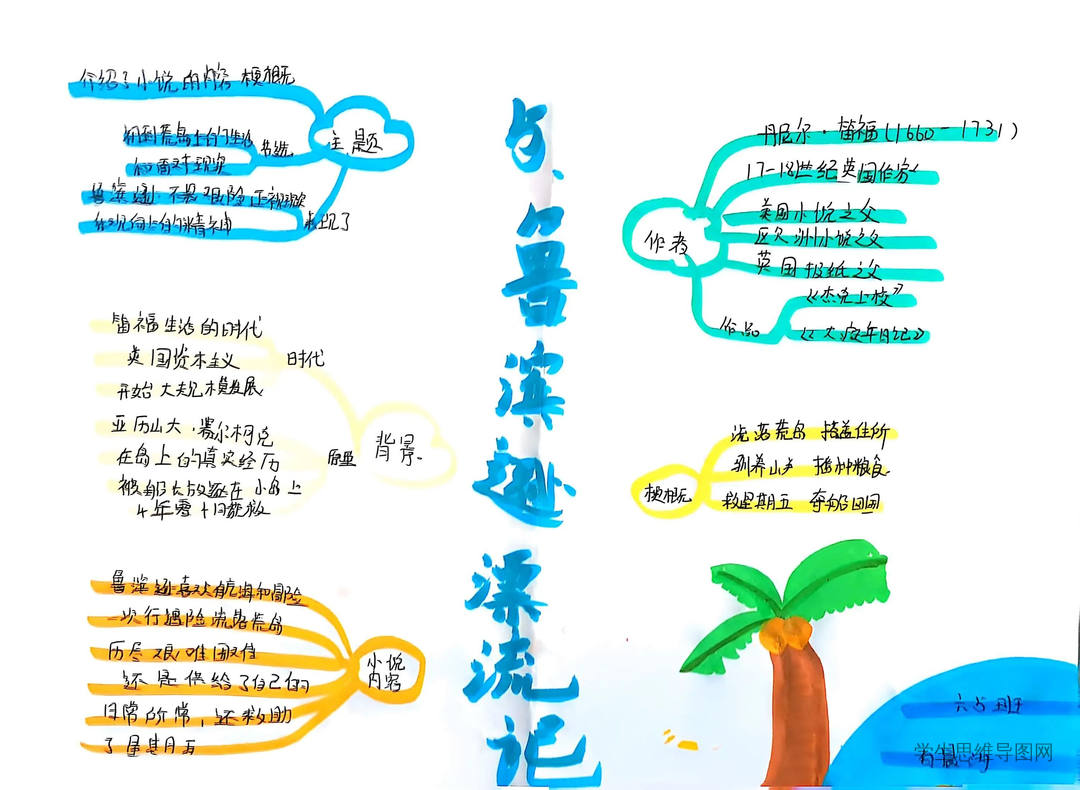 鲁滨逊
漂流记
主题
介绍了小说的内容梗概
初到荒岛上的生活
和面对现实
表现了
作者
丹尼尔·笛福(1660-1731)
17-18世纪英国作家
英国小说之父
欧洲小说之父
英国报纸之父
作品
《杰克上校》
《大疫年日记》
背景
时代
笛福生活的时代
英国资本主义
开始大规模发展
原型
亚历山大·塞尔柯克
在岛上的真实经历
被船长放逐在小岛上
4年零
梗概
流落荒岛 搭盖住所
驯养山羊 播种粮食
救星期五 夺船回国
小说
内容
鲁滨逊喜欢航海和冒险
一次行遇险流落荒岛
历尽艰难
还是供给了自己的
日常所常,还救助
了星期五
六5班
学生思维导图网